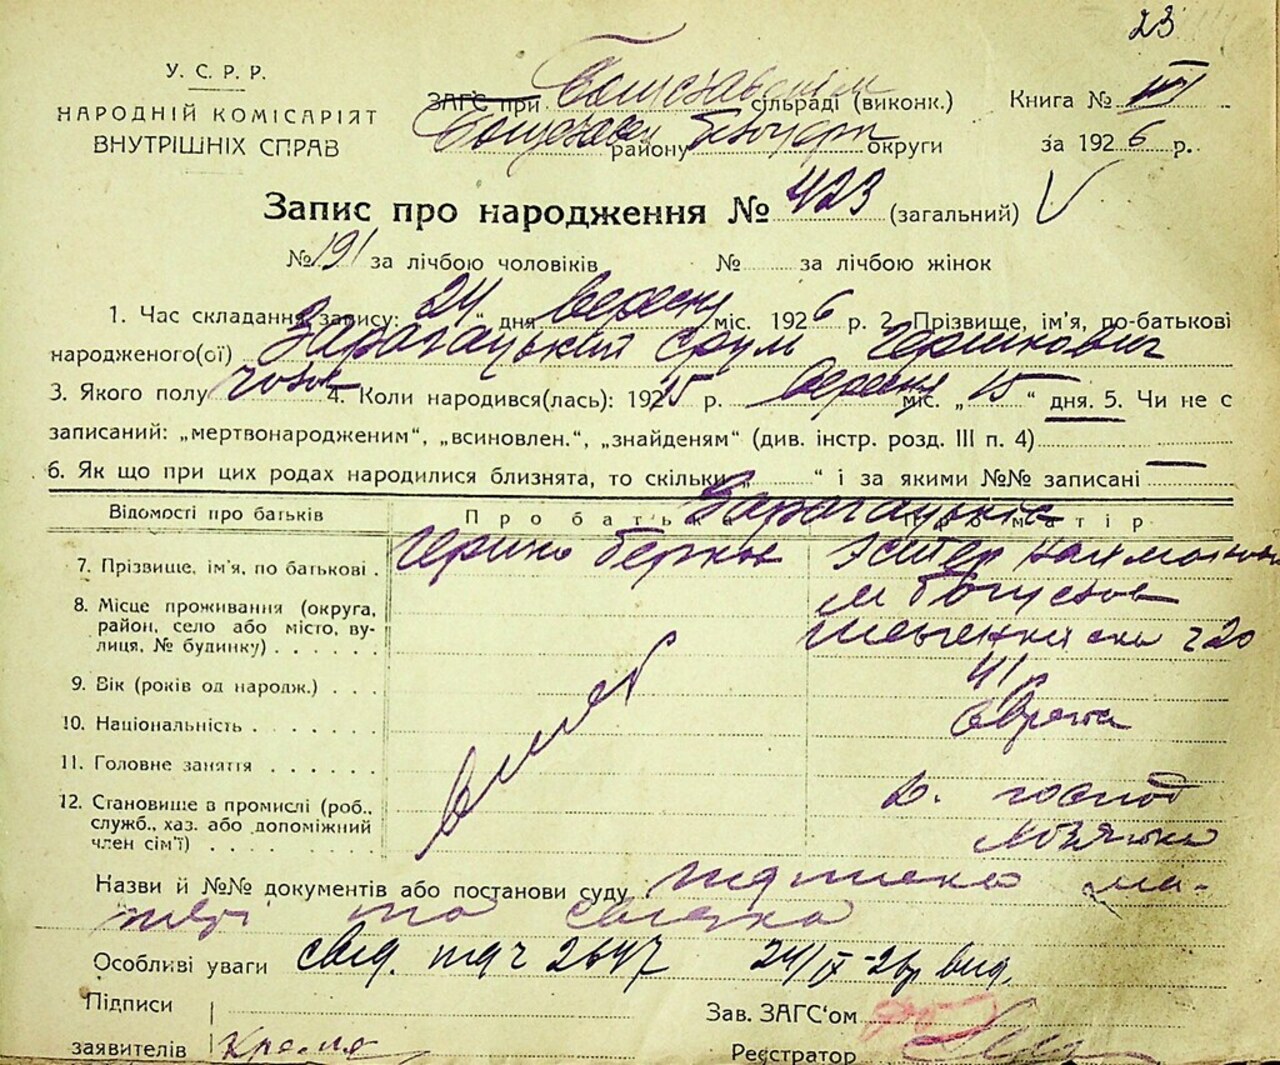 23
У. С. Р. Р.
НАРОДНІЙ КОМІСАРІЯТ
ВНУТРІШНІХ СПРАВ
ЗАГС при сільраді (виконк.)
району округи
Книга № III
за 1926 р.
Запис про народження № 423 (загальний)
№ 191 за лічбою чоловіків № за лічбою жінок
1. Час складання запису: 24 “ дня вересня міс. 1926 р. 2. Прізвище, ім’я, по-батькові
народженого(ої) Зарагацький Срул Гершкович
3. Якого полу чолов 4. Коли народився(лась): 1915 р. вересня міс. „ 15 “ дня. 5. Чи не є
записаний: „мертвонародженим“, „всиновлен.“, „знайденям“ (див. інстр. розд. III п. 4)
6. Як що при цих родах народилися близнята, то скільки „ “ і за якими №№ записані
Відомості про батьків Про батька Про матір
Зарагацькіє
7. Прізвище, ім’я, по батькові . Гершко Берков Эстер
8. Місце проживання (округа,
район, село або місто, ву-
лиця, № будинку) . . . . . .
м Богуслав
Шевченківська ч 20
9. Вік (років од народж.) . . . 41
10. Національність . . . . . . . Єврейка
11. Головне заняття . . . . . .
12. Становище в промислі (роб.,
служб., хаз. або допоміжний
член сім’ї) . . . .
д. господ
хозяйка
вмер
Назви й №№ документів або постанови суду підписка ма-
тері та свідка
Особливі уваги свід. під ч 2647 24/IX-26р вид.
Підписи
заявителів
Зав. ЗАГС‘ом
Реєстратор